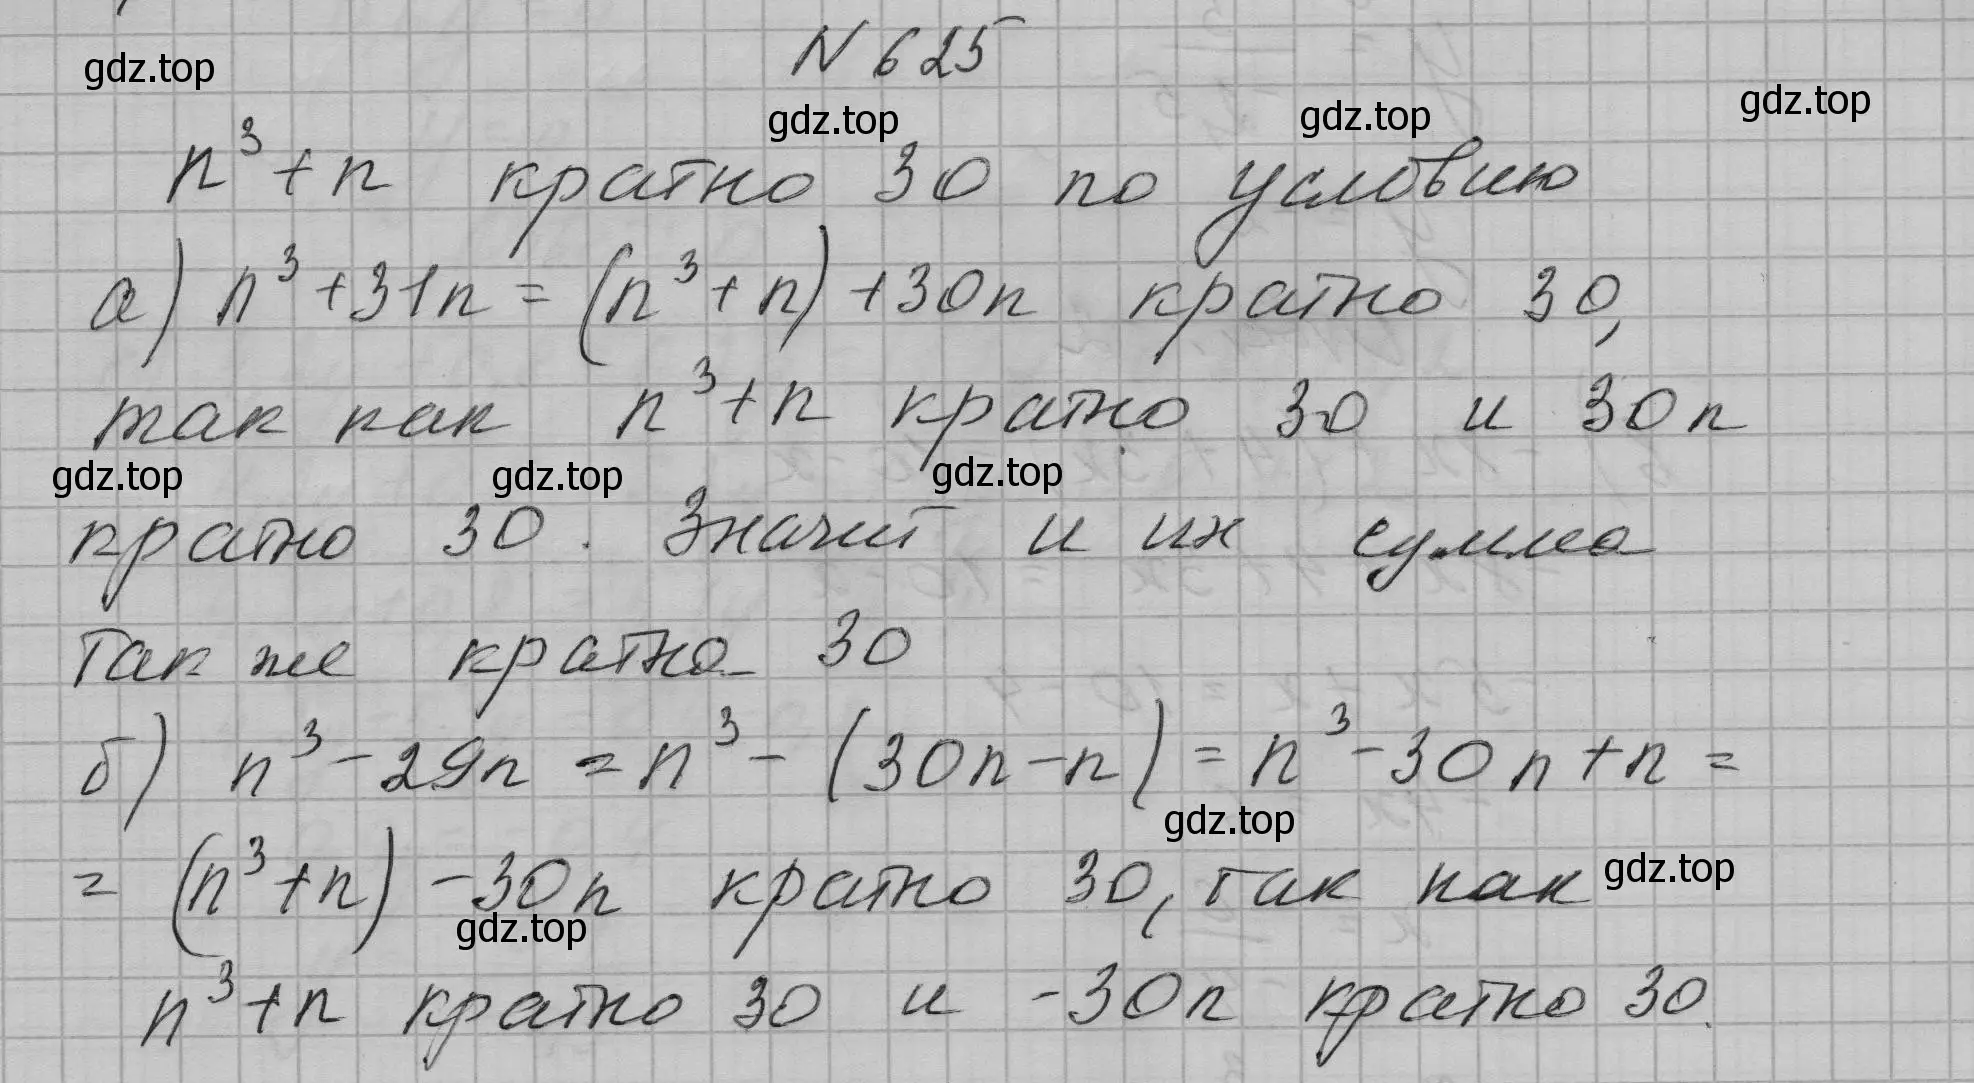 N 625
gdz.top
gdz.top
gdz.top
gdz.top
n³+n кратно 30 по условию
а) n³+31n = (n³+n)+30n кратно 30,
так как n³+n кратно 30 и 30n
gdz.top
gdz.top
gdz.top
кратно 30. Значит и их сумма
так же кратна 30
б) n³-29n = n³-(30n-n) = n³-30n+n =
gdz.top
= (n³+n) -30n кратно 30, так как
gdz.top
gdz.top
n³+n кратно 30 и -30n кратно 30.